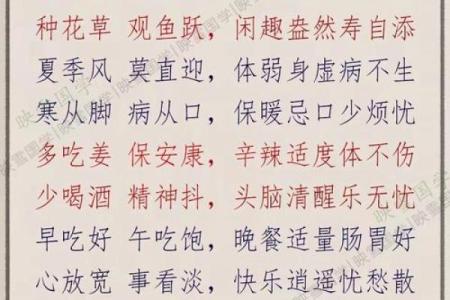 种花草 观鱼跃，闲趣盎然寿自添
夏季风 莫直迎，体弱身虚病不生
寒从脚 病从口，保暖忌口少烦忧
多吃姜 保安康，辛辣适度体不伤
少喝酒 精神抖，头脑清醒乐无忧
早吃好 午吃饱，晚餐适量肠胃好
心放宽 事看淡，快乐逍遥忧愁散
映雪国学|映雪国学|映雪国学